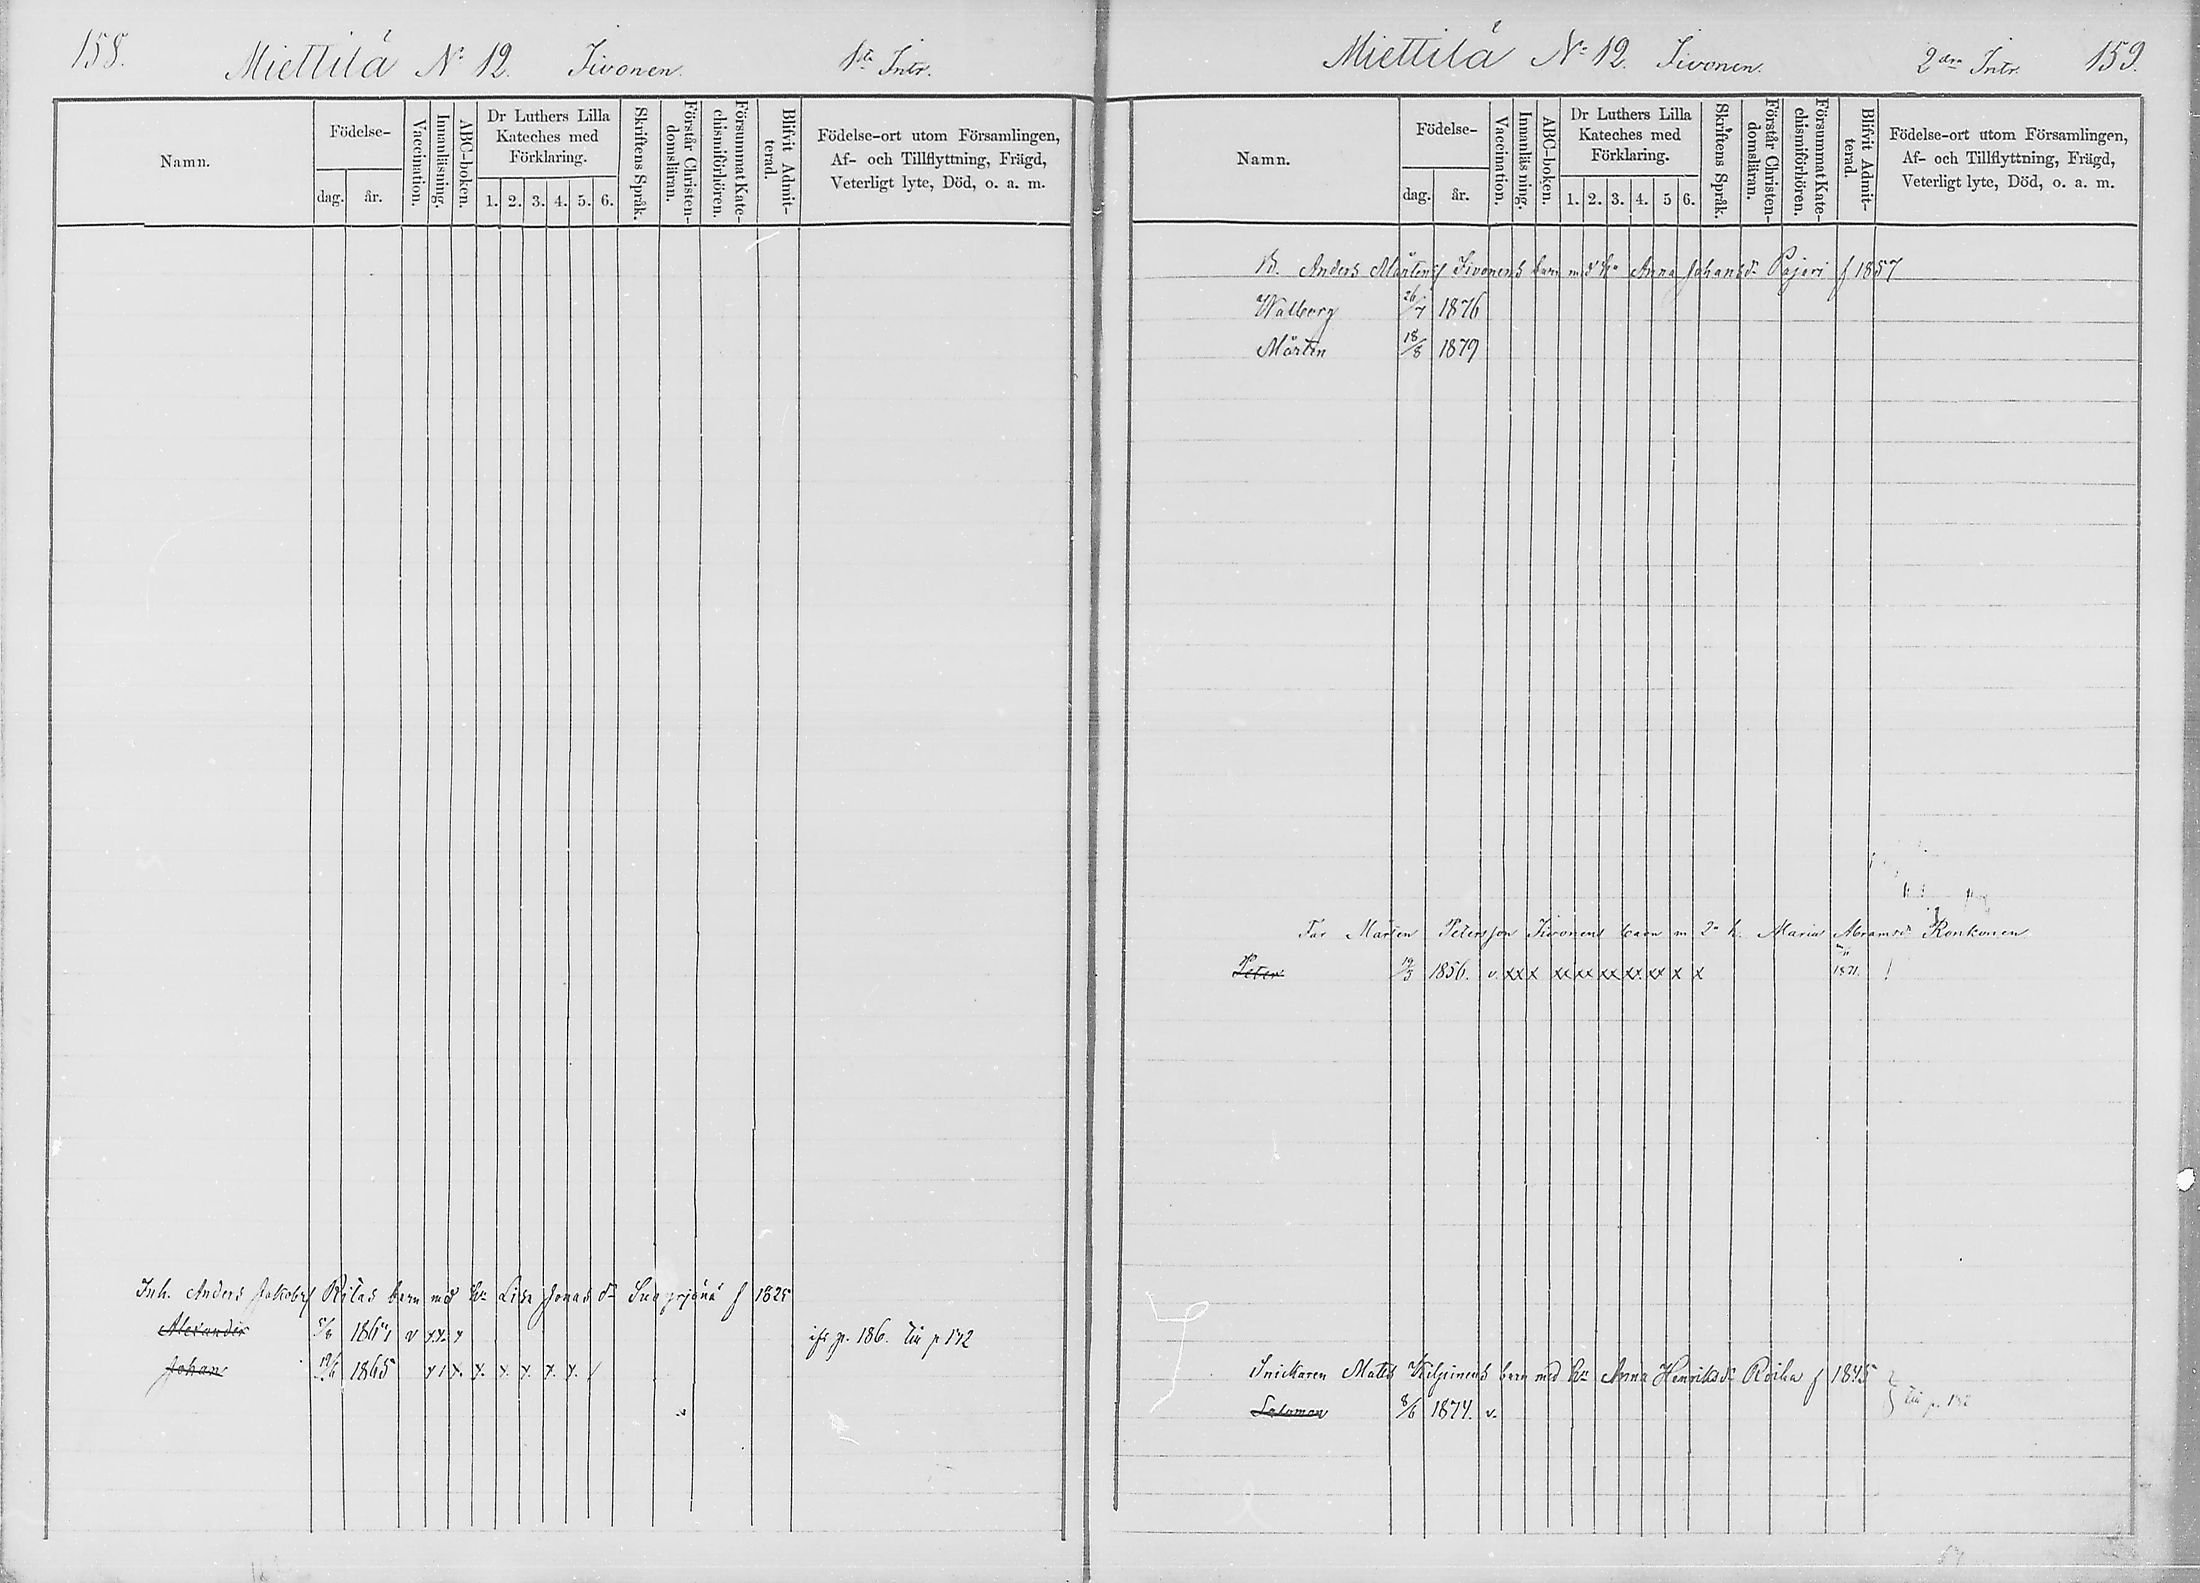 158.
Miettilä No 12. Iivonen. 1sta Intr.
Namn.
Födelse-
dag.
år.
Vaccination.
Innanläsning.
ABC-boken.
Dr Luthers Lilla Kateches med Förklaring.
1. 2. 3. 4. 5. 6.
Skriftens Språk.
Förstår Christen-
domsläran.
Försummat Kate-
chismiförhören.
Blifvit Admit-
terad.
Födelse-ort utom Församlingen,
Af- och Tillflyttning, Frägd,
Veterligt lyte, Död, o. a. m.
Inh. Anders Jakobs Ritas barn med hu Lisa Jonas dr f 1825
Alexander 1861 v
p. 186. p 142
Johan 1865
Miettilä No 12. Iivonen. 2dra Intr. 159.
Namn.
Födelse-
dag.
år.
Vaccination.
Innanläs ning.
ABC-boken.
Dr Luthers Lilla
Kateches med
Förklaring.
1. 2. 3. 4. 5 6.
Skriftens Språk.
Förstår Christen-
domsläran.
Försummat Kate-
chismiförhören.
Blifvit Admit-
terad.
Födelse-ort utom Församlingen,
Af- och Tillflyttning, Frägd,
Veterligt lyte, Död, o. a. m.
B. Anders Mårtens Iivonens barn md hu Anna Johansdr Pajari f 1857
Walborg 26/7 1876
Mårten 18/8 1879
Far Mårten Petersson Iivonens barn m 2a h. Maria Abramsdr Ronkonen
Peter 19/3 1856. v. xxx xx xx xx xx xx x x 1871. !
Snickaren Matts Kilpinens barn med hu Anna Henriksdr Roiha f 1845
Salomon 8/6 1874. v.